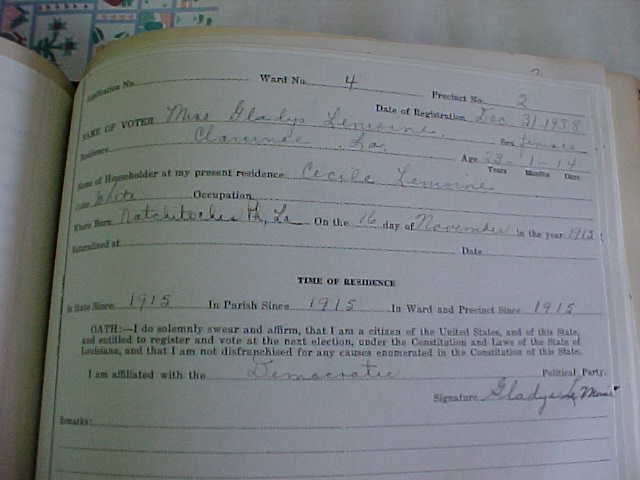 Application No. Ward No. 4 Precinct No. 2
Date of Registration Dec. 31 1938
NAME OF VOTER Miss Gladys Lemoine, Sex female
Residence Clarence La. Age 23-1-14
Years Months Days
Name of Householder at my present residence Cecile Lemoine
Color White Occupation
Where Born Natchitoches Ph, La On the 16 day of November in the year 1915
Naturalized at Date
TIME OF RESIDENCE
In State Since 1915 In Parish Since 1915 In Ward and Precinct Since 1915
OATH:—I do solemnly swear and affirm, that I am a citizen of the United States, and of this State,
and entitled to register and vote at the next election, under the Constitution and Laws of the State of
Louisiana, and that I am not disfranchised for any causes enumerated in the Constitution of this State.
I am affiliated with the Democratic Political Party.
Signature Gladys
Remarks: